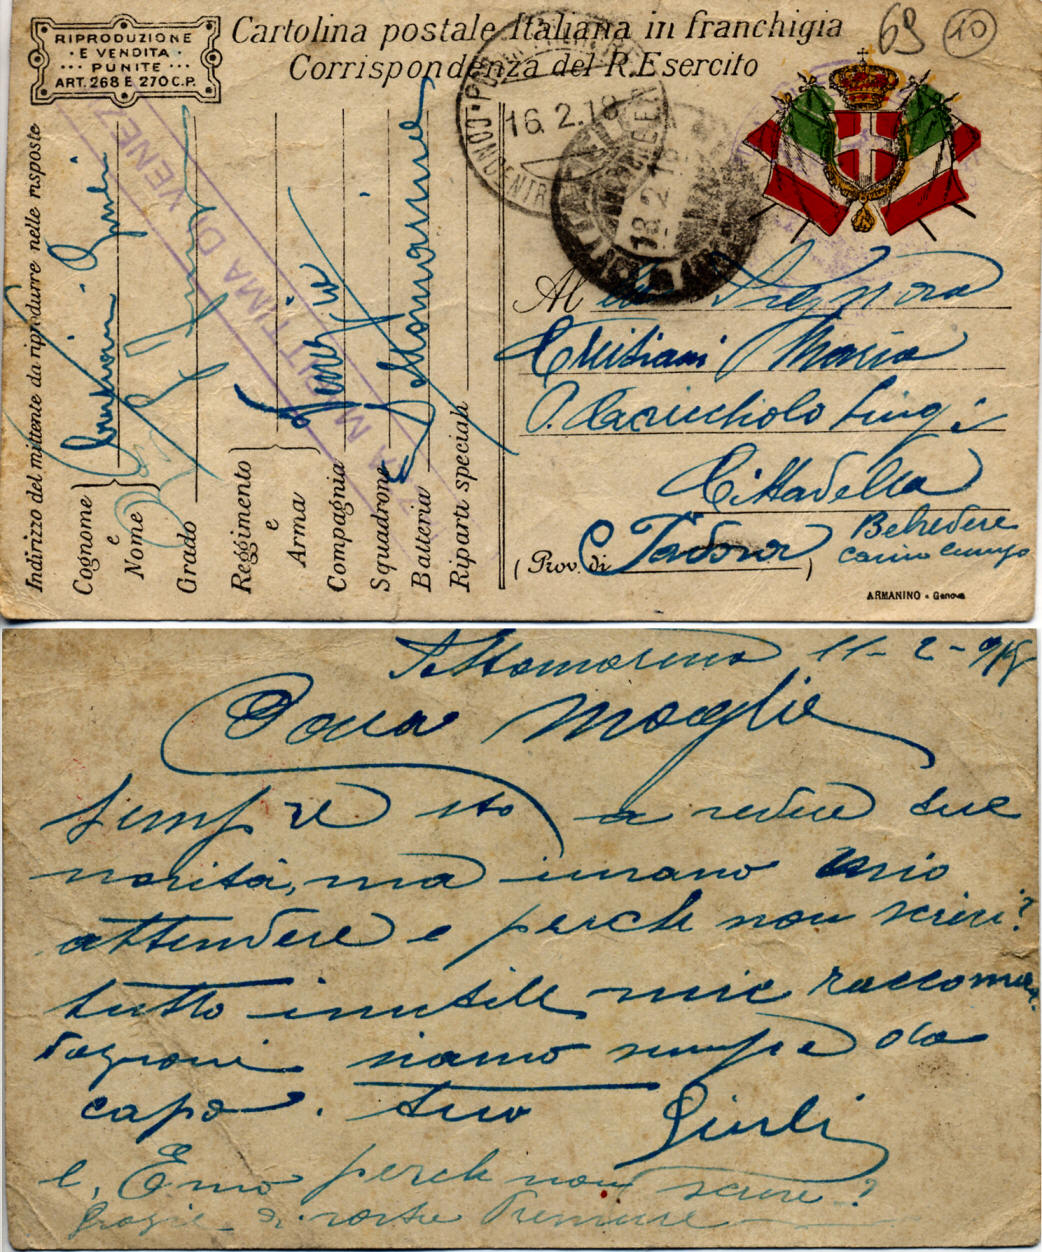 RIPRODUZIONE
E VENDITA
PUNITE
ART. 268 E 270 C.P.
Cartolina postale Italiana in franchigia
Corrispondenza del R. Esercito
69
10
16.2.18
18.2.18
Indirizzo del mittente da riprodurre nelle risposte
Cognome
e
Nome
Grado
Reggimento
e
Arma
Compagnia
Squadrone
Batteria
Riparti speciali
PIAZZA MARITTIMA DI VENEZ
Al la Signora
Maria
Luigi
Cittadella
(Prov. di Padova)
Belvedere
ARMANINO - Genova
Sottomarina 11-2-918
Cara Moglie
sempre sto a vedere sue
novità, ma invano mio
attendere e perche non scrivi?
tutto inutile mie raccoman
dazioni siamo sempre da
capo. tuo Giuli
e, Emo perche non scrive?
Grazie di vostre premure